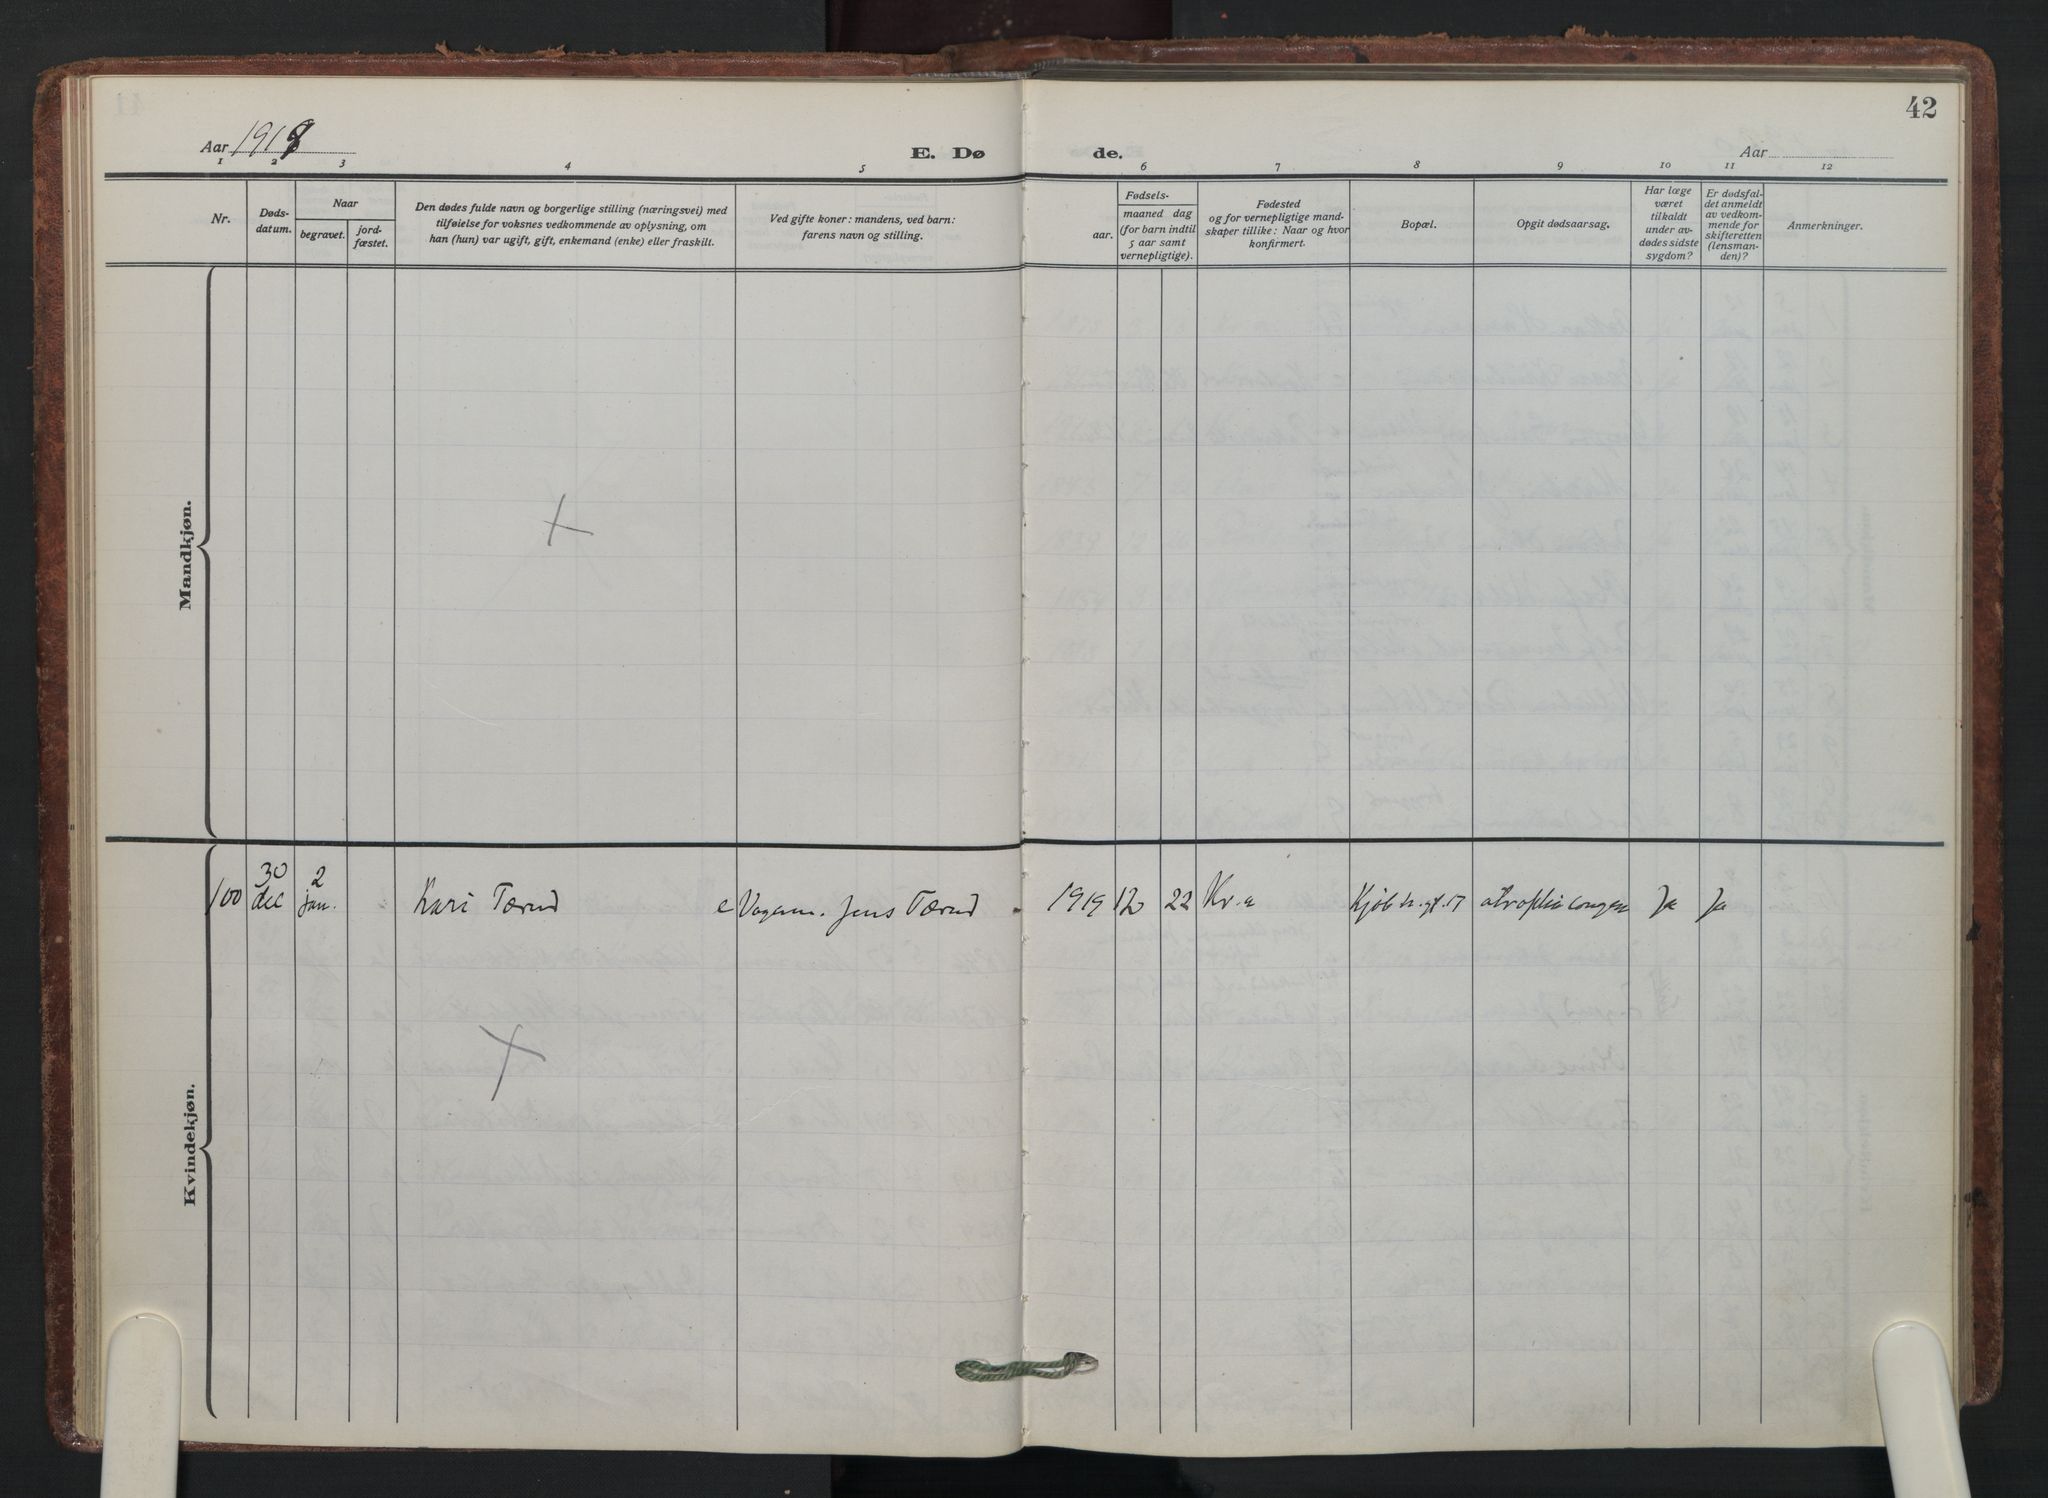 42
Aar 1919
E. Dø de.
Aar
1 2 3 4 5 6 7 8 9 10 11 12
Nr.
Døds-
datum.
Naar
begravet.
jord-
fæstet.
Den dødes fulde navn og borgerlige stilling (næringsvei) med
tilføielse for voksnes vedkommende av oplysning, om
han (hun) var ugift, gift, enkemand (enke) eller fraskilt.
Ved gifte koner: mandens, ved barn:
farens navn og stilling.
Fødsels-
aar.
maaned dag
(for barn indtil
5 aar samt
vernepligtige).
Fødested
og for vernepligtige mand-
skaper tillike: Naar og hvor
konfirmert.
Bopæl.
Opgit dødsaarsag.
Har læge
været
tilkaldt
under av-
dødes sidste
sygdom?
Er dødsfal-
det anmeldt
av vedkom-
mende for
skifteretten
(lensman-
den)?
Anmerkninger.
Mandkjøn.
Kvindekjøn.
100 30 dec 2 jan. Kari Tærud Vognm. Jens Tærud 1919 12 22 Kr.a Kjøbh.gt. 17 atrofia congen Ja Ja